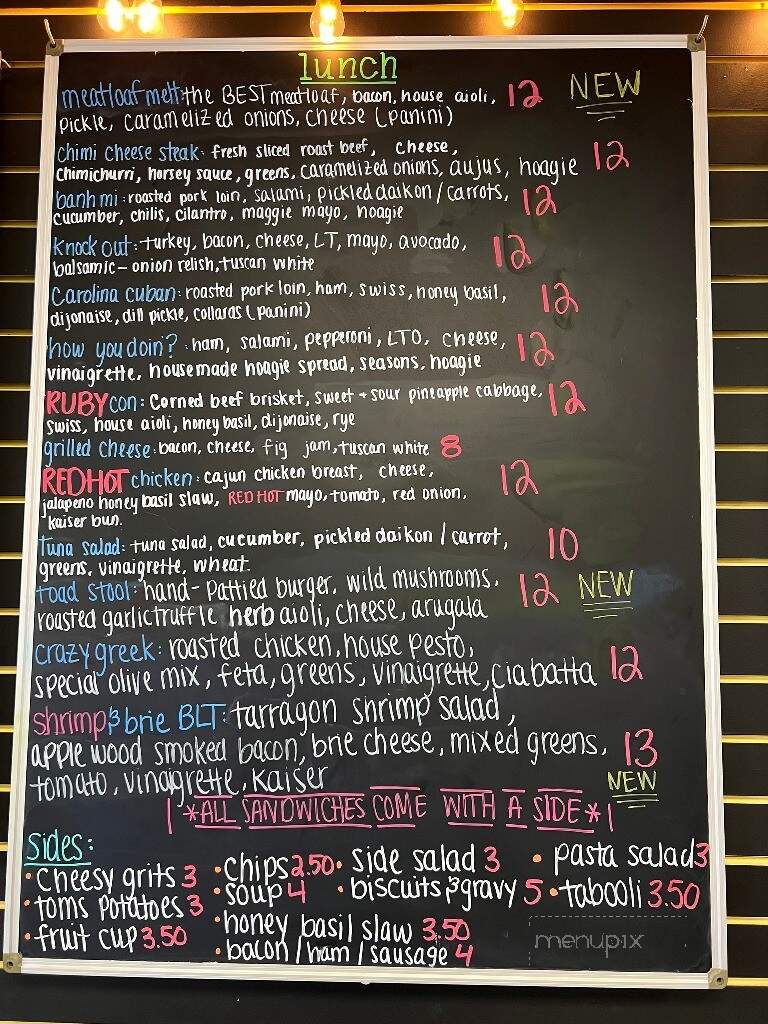 lunch
meatloaf melt: the BEST meatloaf, bacon, house aioli, 12 NEW
pickle, caramelized onions, cheese (panini)
chimi cheese steak: fresh sliced roast beef, cheese,
chimichurri, horsey sauce, greens, caramelized onions, aujus, hoagie 12
banh mi: roasted pork loin, salami, pickled daikon / carrots, 12
cucumber, chilis, cilantro, maggie mayo, hoagie
Knock out: turkey, bacon, cheese, LT, mayo, avocado, 12
balsamic - onion relish, tuscan white
Carolina cuban: roasted pork loin, ham, swiss, honey basil, 12
dijonaise, dill pickle, collards (panini)
how you doin?: ham, salami, pepperoni, LTO, cheese, 12
vinaigrette, housemade hoagie spread, seasons, hoagie
RUBYcon: Corned beef brisket, sweet + sour pineapple cabbage, 12
swiss, house aioli, honey basil, dijonaise, rye
grilled cheese: bacon, cheese, fig jam, tuscan white 8
REDHOT chicken: cajun chicken breast, cheese, 12
jalapeno honey basil slaw, RED HOT mayo, tomato, red onion,
kaiser bun.
Tuna salad: tuna salad, cucumber, pickled daikon / carrot, 10
greens, vinaigrette, wheat.
toad stool: hand-pattied burger, wild mushrooms, 12 NEW
roasted garlic truffle herb aioli, cheese, arugala
crazy greek: roasted chicken, house pesto,
special olive mix, feta, greens, vinaigrette, ciabatta 12
shrimp & brie BLT: tarragon shrimp salad,
apple wood smoked bacon, brie cheese, mixed greens, 13
tomato, vinaigrette, kaiser NEW
*ALL SANDWICHES COME WITH A SIDE*
sides:
• cheesy grits 3 • chips 2.50 • side salad 3 • pasta salad 3
• toms potatoes 3 • soup 4 • biscuits & gravy 5 • tabooli 3.50
• fruit cup 3.50 • honey basil slaw 3.50
• bacon / ham / sausage 4
menupix